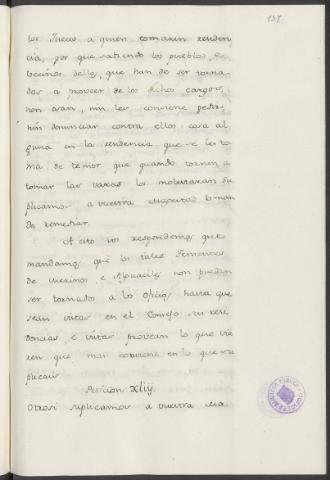 137.
los Jueces a quien tomaren residen
cia, por que sabiendo los pueblos, e
vecinos dellos, que han de ser torna
dos a proveer de los dichos cargos,
non osan, nin les conviene pedir,
nin denunciar contra ellos cosa al
guna en la residencia que se les to
ma, de temor que quando tornen a
tomar las varas los molestaran su
plicamos a vuestra Magestad lo man
de remediar.
A esto vos respondemos que
mandamos que los tales Tenientes
de merinos, e Alguaciles non puedan
ser tornados a los oficios hasta que
sean vistas en el Consejo sus resi
dencias e vistas provean lo que vie
ren que mas conviene en lo que su
plicais
Peticion XLiij.
Otrosi suplicamos a vuestra Ma